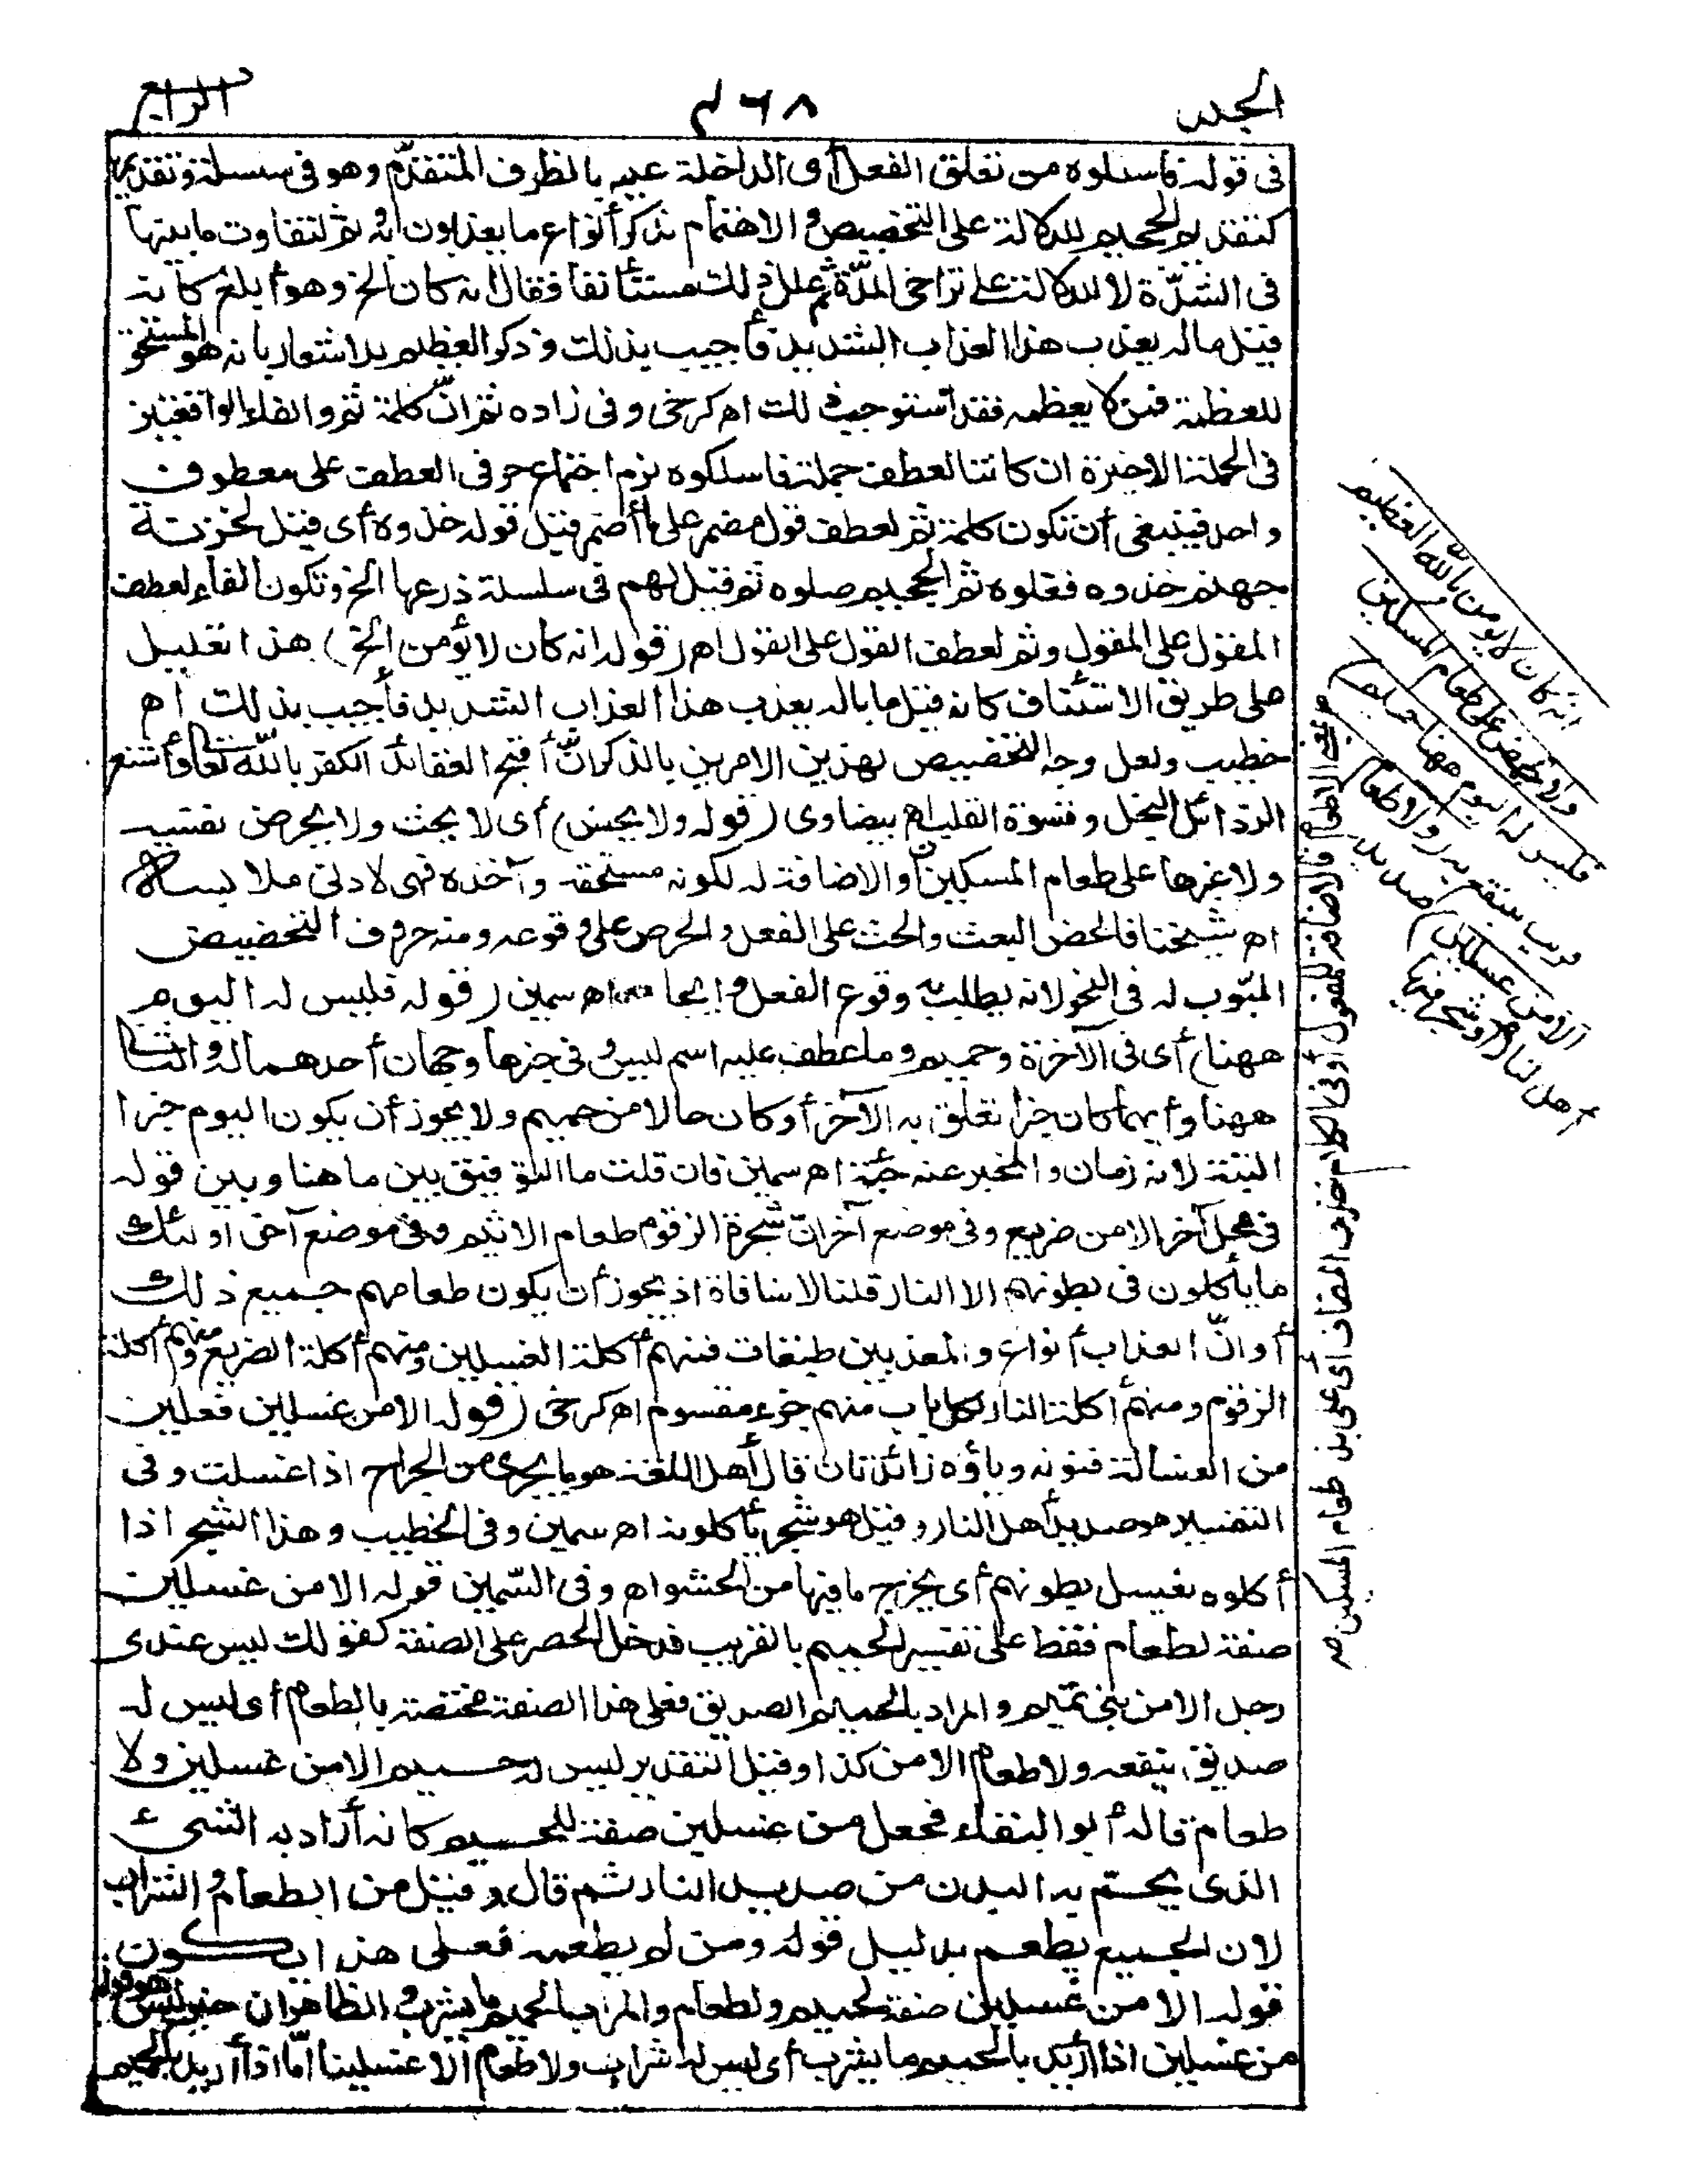 الجلد
٤٦٨
الرابع
فى قوله فاسلكوه من تعلق الفعل أى الداخلة عليه بالظرف المتقدم وهو فى سلسلة وتقديمها
كتقديم الجحيم للدلالة على التخصيص والاهتمام بذكر أنواع ما يعذبون به ثم لتفاوت ما بينها
فى الشدّة لا للدلالة على تراخى المدّة ثم علل ذلك مستأنفا فقال انه كان الخ وهو أبلغ كأنه
قيل ما له يعذب هذا العذاب الشديد فأجيب بذلك وذكر العظيم للاشعار بانه هو المستحق
للعظمة فمن لا يعظمه فقد استوجب ذلك اه كرخى وفى زاده ثم انّ كلمة ثم والفاء الواقعتين
فى الجملة الاخيرة ان كانتا لعطف جملة فاسلكوه لزم اجتماع حرفى العطف على معطوف
واحد فينبغى أن تكون كلمة ثم لعطف قول مضمر على ما أضمر قبل قوله خذوه أى قيل لخزنة
جهنم خذوه فغلوه ثم الجحيم صلوه ثم قيل لهم فى سلسلة ذرعها الخ وتكون الفاء لعطف
المقول على المقول وثم لعطف القول على القول اه (قوله انه كان لا يؤمن الخ) هذا تعليل
على طريق الاستئناف كانه قيل ما باله يعذب هذا العذاب الشديد فأجيب بذلك اه
خطيب ولعل وجه التخصيص بهذين الامرين بالذكر انّ أقبح العقائد الكفر بالله تعالى وأشنع
الرذائل البخل وقسوة القلب اه بيضاوى (قوله ولا يحض) أى لا يحث ولا يحرض نفسه
ولا غيرها على طعام المسكين والاضافة له لكونه مستحقه وآخذه فهى لأدنى ملابسة
اه شيخنا فالحض البعث والحث على الفعل والحرص على وقوعه ومنه حروف التحضيض
المبوّب له فى النحو لانه يطلب به وقوع الفعل وايجاده اه سمين (قوله فليس له اليوم
ههنا) أى فى الآخرة وحميم وما عطف عليه اسم ليس وفى خبرها وجهان أحدهما له والثانى
ههنا وأيهما كان خبرا تعلق به الآخر أو كان حالا من حميم ولا يجوز أن يكون اليوم خبرا
البتة لانه زمان والمخبر عنه جثة اه سمين فان قلت ما التوفيق بين ما هنا وبين قوله
فى محل آخر الا من ضريع وفى موضع آخر انّ شجرة الزقوم طعام الاثيم وفى موضع آخر اولئك
ما يأكلون فى بطونهم الا النار قلنا لا منافاة اذ يجوز أن يكون طعامهم جميع ذلك
أو انّ العذاب أنواع والمعذبين طبقات فمنهم أكلة الغسلين ومنهم أكلة الضريع ومنهم أكلة
الزقوم ومنهم أكلة النار لكل باب منهم جزء مقسوم اه كرخى (قوله الا من غسلين) فعلين
من الغسالة فنونه وياؤه زائدتان قال أهل اللغة هو ما يجرى من الجراح اذا غسلت وفى
التفسير هو صديد أهل النار وقيل هو شجر يأكلونه اه سمين وفى الخطيب وهذا الشجر اذا
أكلوه يغسل بطونهم أى يخرج ما فيها من الحشو اه وفى السمين قوله الا من غسلين
صفة لطعام فقط على تفسير الحميم بالقريب فدخل الحصر على الصفة كقولك ليس عندى
رجل الا من بنى تميم والمراد بالحميم الصديق فعلى هذا الصفة مختصة بالطعام أى ليس له
صديق ينفعه ولا طعام الا من كذا وقيل التقدير ليس له حميم الا من غسلين ولا
طعام قاله أبو البقاء فجعل من غسلين صفة للحميم كانه أراد به الشىء
الذى يحم به البدن من صديد النار ثم قال وقيل من الطعام والشراب
لان الجميع يطعم بدليل قوله ومن لم يطعمه فعلى هذا يكون
قوله الا من غسلين صفة لحميم ولطعام والمراد بالحميم ما يشرب والظاهر ان خبر ليس هو قوله
من غسلين اذا أريد بالحميم ما يشرب أى ليس له شراب ولا طعام الا غسلينا امّا اذا أريد بالحميم
انه كان لا يؤمن بالله العظيم
ولا يحض على طعام المسكين
فليس له اليوم ههنا حميم)
قريب ينتفع به (ولا طعام
الا من غسلين) صديد
أهل النار أو شجر فيها
الاطعام فالاضافة للمفعول أو فى الكلام حذف المضاف أى على بذل طعام المسكين اه